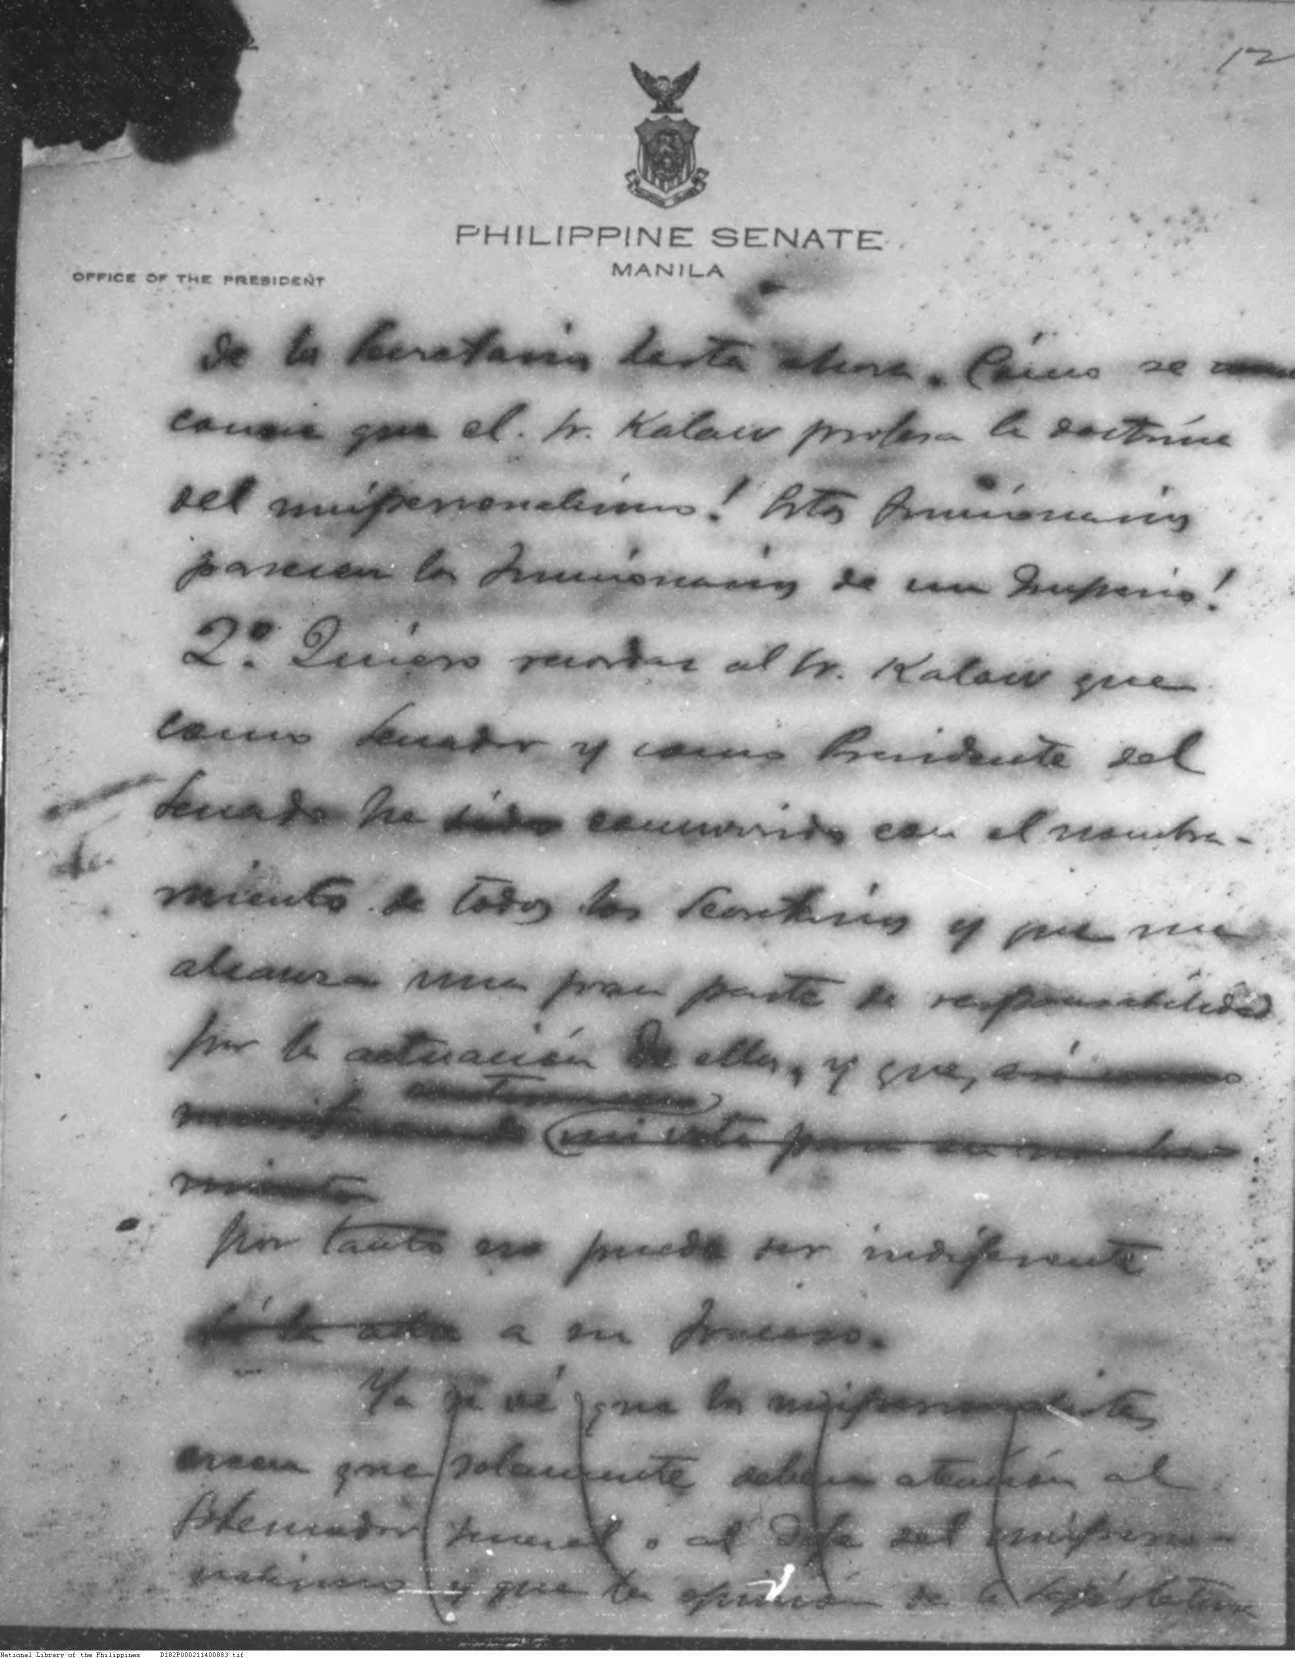 12
PHILIPPINE SENATE
MANILA
OFFICE OF THE PRESIDENT
de la Secretaria hasta ahora. Cómo se
conoce que el Sr. Kalaw profesa la doctrina
del unipersonalismo! Estos funcionarios
parecen los funcionarios de un Imperio!
2º. Quiero recordar al Sr. Kalaw que
como Senador y como Presidente del
Senado he sido concurrido con el nombra-
miento de todos los Secretarios y que me
alcanza una gran parte de responsabilidad
por la actuación de ellos, y que,
mi voto para su nombra
miento
por tanto no puede ser indiferente
a su fracaso.
Ya se vé que los unipersonalistas
creen que solamente deben atención al
Gobernador General o al Jefe del uniperso-
nalismo y que la opinión de la Legislatura
National Library of the Philippines D182P000211400883.tif